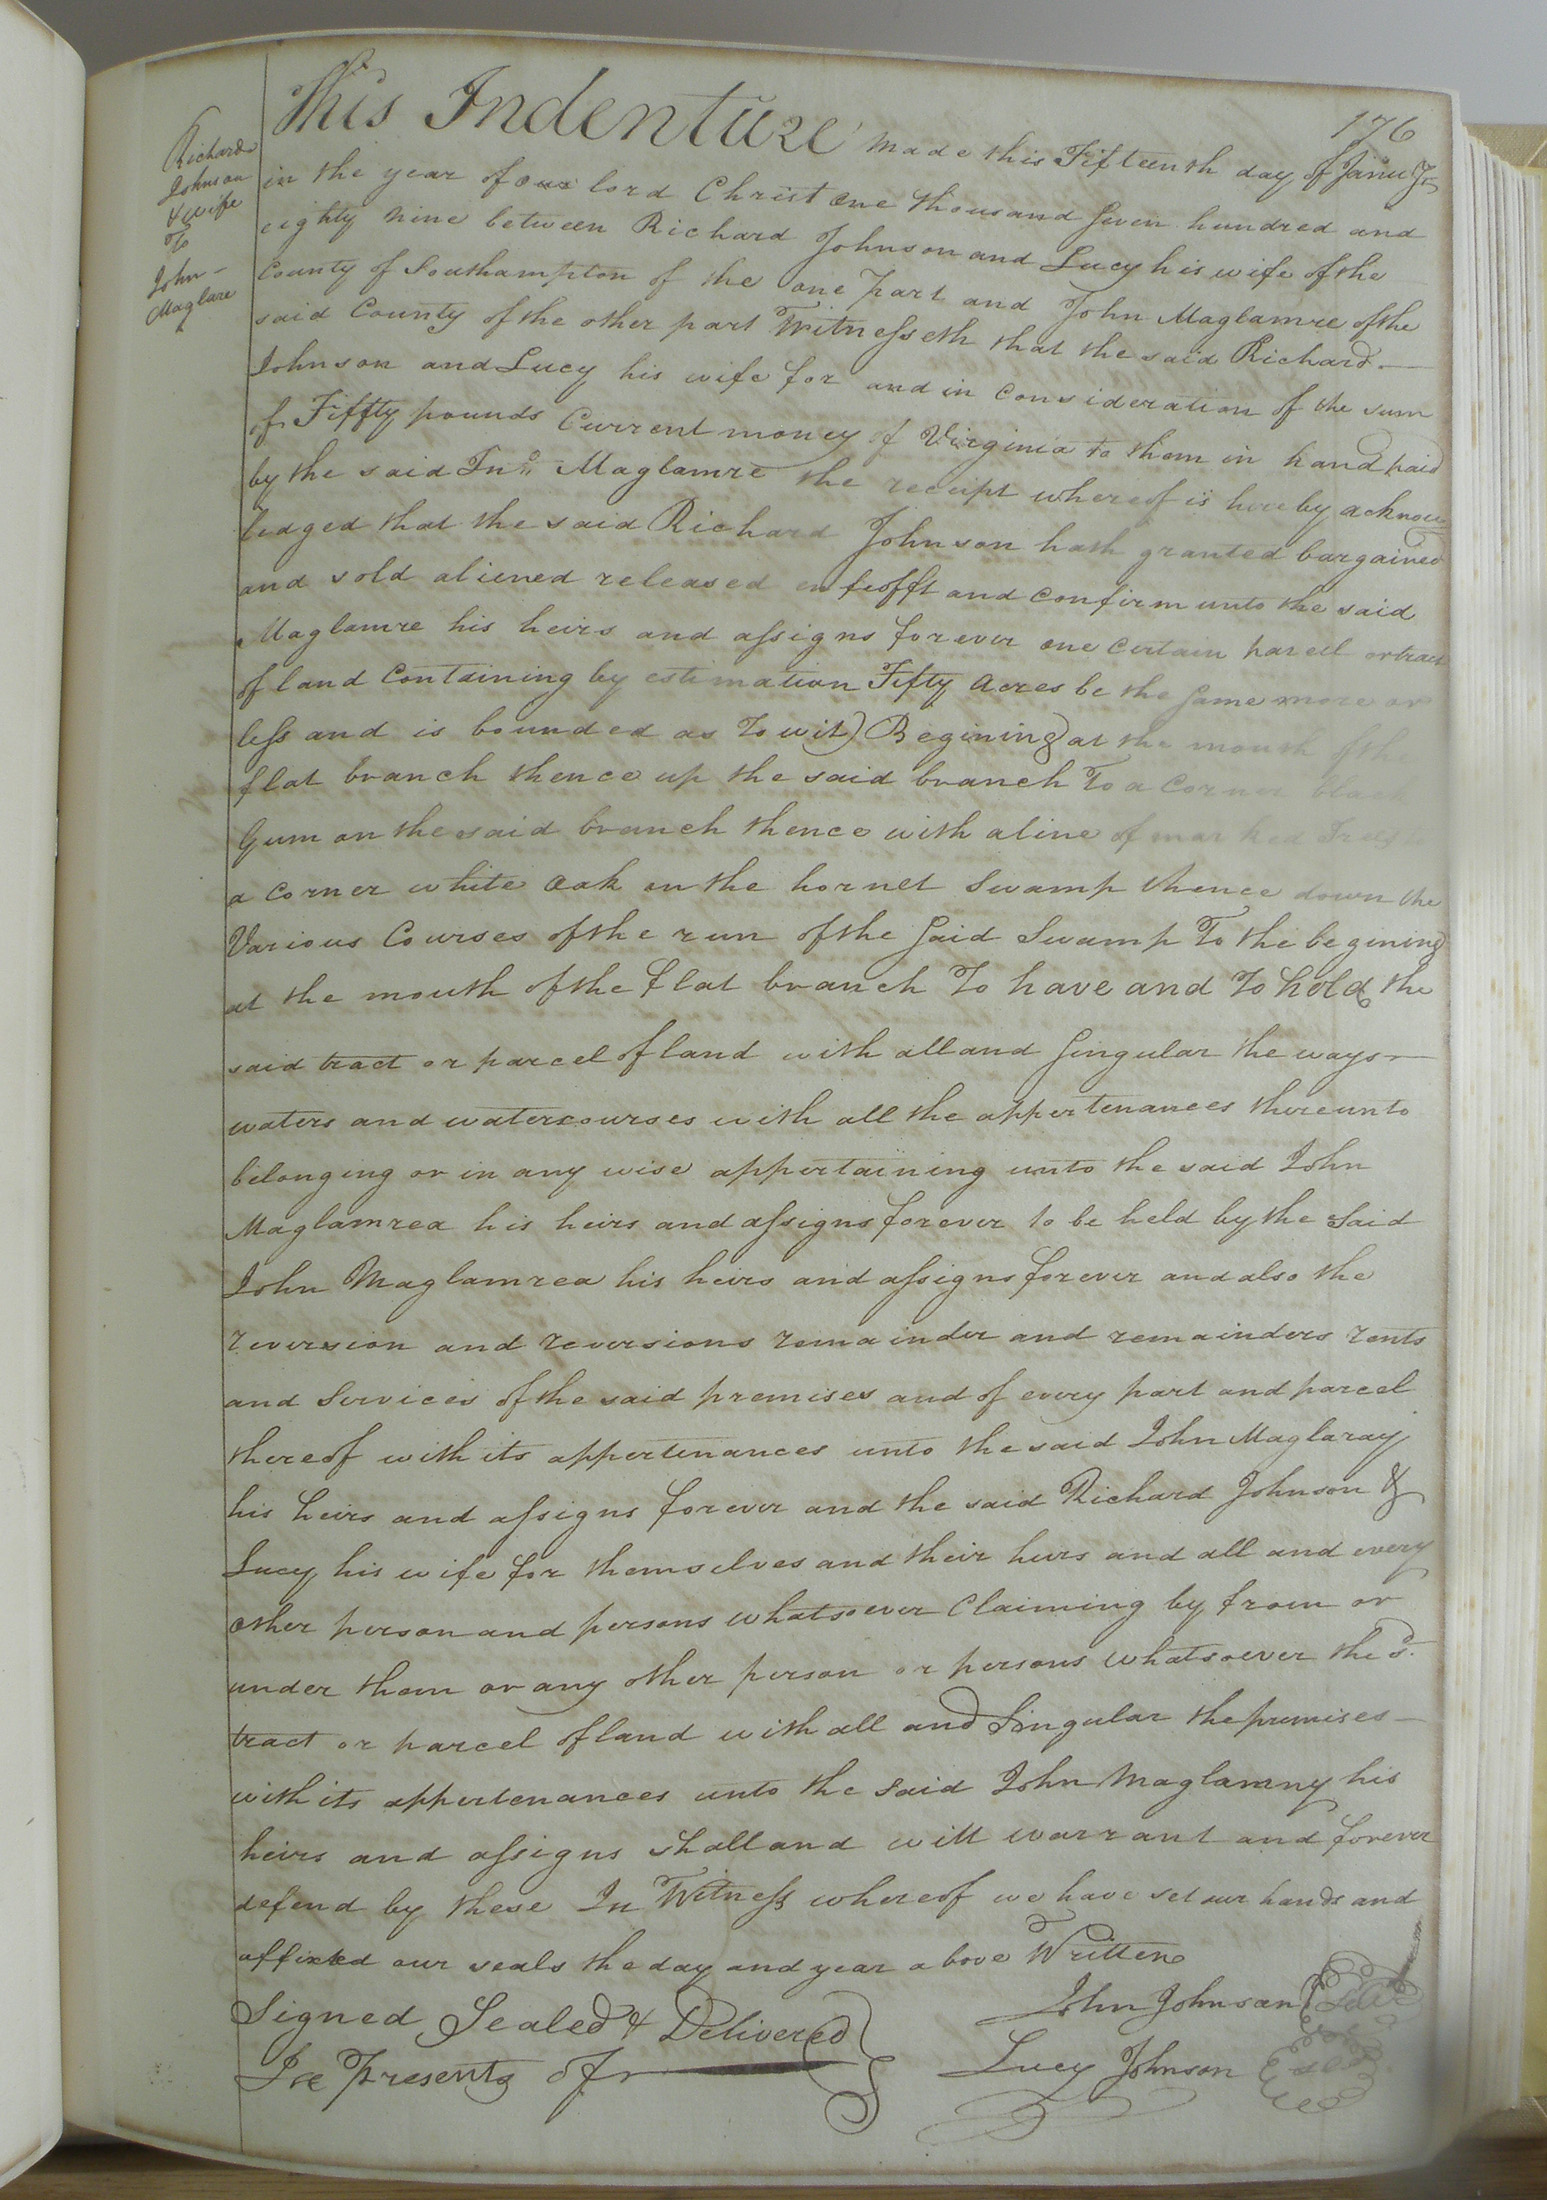 176
Richard
Johnson
& wife
To
John
Maglare
This Indenture made this Fifteenth day of Janu
in the year of our lord Christ one thousand Seven hundred and
eighty nine between Richard Johnson and Lucy his wife of the
County of Southampton of the one part and John Maglamre of the
said County of the other part Witnesseth that the said Richard
Johnson and Lucy his wife for and in consideration of the sum
of Fiffty pounds Current money of Virginia to them in hand paid
by the said Jno. Maglamre the receipt whereof is hereby acknow
ledged that the said Richard Johnson hath granted bargained
and sold aliened released enfeofft and confirm unto the said
Maglamre his heirs and assigns forever one certain parcel or tract
of land Containing by estimation Fifty Acres be the same more or
less and is bounded as To wit) Begining at the mouth of the
flat branch thence up the said branch To a Corner black
Gum on the said branch thence with a line of marked Trees
a Corner white Oak on the hornet Swamp thence down the
Various Courses of the run of the Said Swamp To the begining
at the mouth of the flat branch To have and To hold the
said tract or parcel of land with all and Singular the ways
waters and watercourses with all the appertenances thereunto
belonging or in any wise appertaining unto the said John
Maglamrea his heirs and assigns forever to be held by the Said
John Maglamrea his heirs and assigns forever and also the
reversion and reversions remainder and remainders rents
and Services of the said premises and of every part and parcel
thereof with its appertenances unto the said John Maglaray
his heirs and assigns forever and the said Richard Johnson &
Lucy his wife for themselves and their heirs and all and every
other person and persons whatsoever Claiming by from or
under them or any other person or persons whatsoever the sd.
tract or parcel of land with all and Singular the premises
with its appertenances unto the said John Maglamny his
heirs and assigns shall and will warrant and forever
defend by these In Witness whereof we have set our hands and
affixed our seals the day and year above Written
Signed Sealed & Delivered
In Presents of
John Johnson (Seal)
Lucy Johnson (Seal)